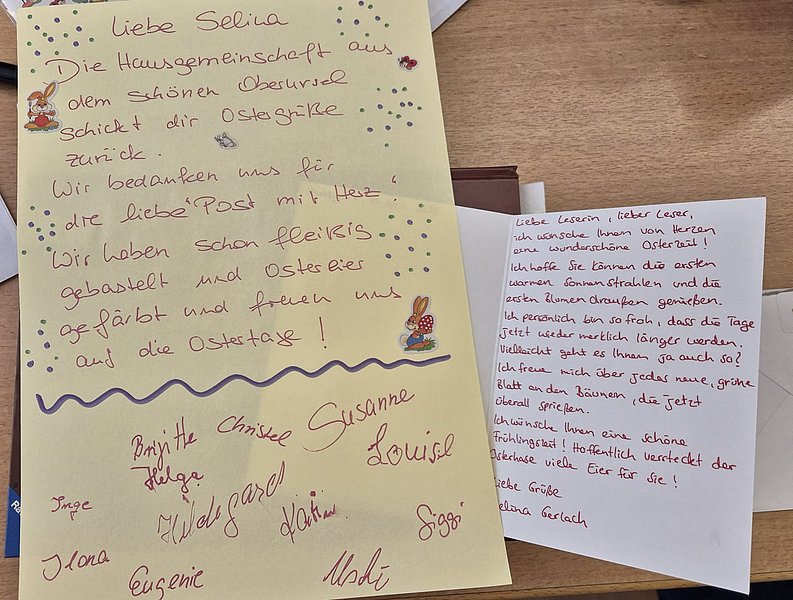 Liebe Selina
Die Hausgemeinschaft aus
dem schönen Oberursel
schickt dir Ostergrüße
zurück.
Wir bedanken uns für
die liebe "Post mit Herz"!
Wir haben schon fleißig
gebastelt und Ostereier
gefärbt und freuen uns
auf die Ostertage!
Brigitte Christel Susanne
Helga Louise
Inge Hildegard Katin Siggi
Ilona Eugenie Uschi
Liebe Leserin, lieber Leser,
ich wünsche Ihnen von Herzen
eine wunderschöne Osterzeit!
Ich hoffe Sie können die ersten
warmen Sonnenstrahlen und die
ersten Blumen draußen genießen.
Ich persönlich bin so froh, dass die Tage
jetzt wieder merklich länger werden.
Vielleicht geht es Ihnen ja auch so?
Ich freue mich über jedes neue, grüne
Blatt an den Bäumen, die jetzt
überall sprießen.
Ich wünsche Ihnen eine schöne
Frühlingszeit! Hoffentlich versteckt der
Osterhase viele Eier für Sie!
Liebe Grüße
Selina Gerlach